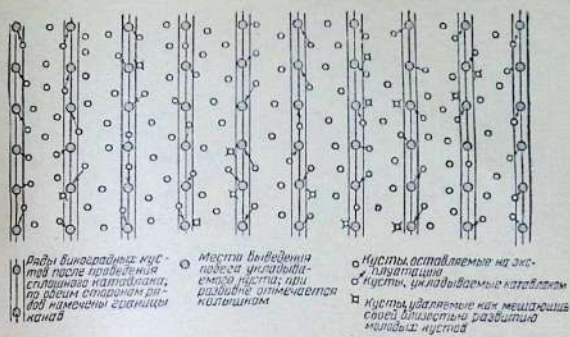 Ряды виноградных кус-
тов после проведения
сплошного катавлака,
по обеим сторонам ря-
дов намечены границы
канав
Места выведения
побега укладыва-
емого куста; при
разбивке отмечается
колышком
Кусты, оставляемые на экс-
плуатацию
Кусты, укладываемые катавлаком
Кусты, удаляемые как мешающие
своей близостью развитию
молодых кустов